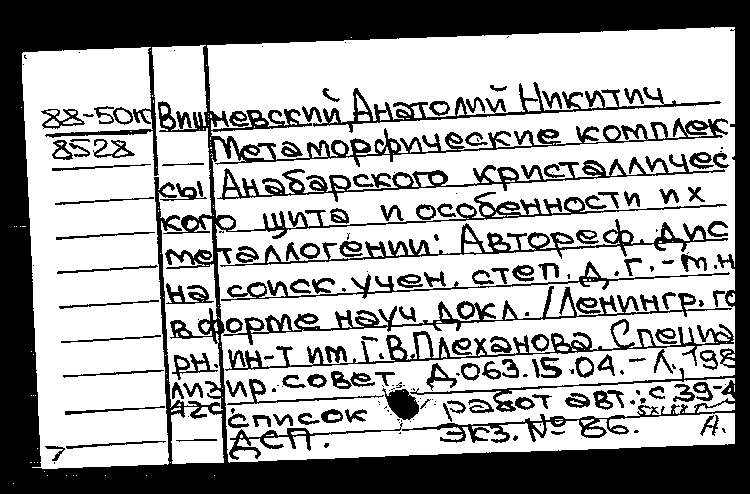 88-50к Вишневский, Анатолий Никитич.
8528 Метаморфические комплек-
сы Анабарского кристалличес-
кого щита и особенности их
металлогении: Автореф. дис
на соиск. учен. степ. д. г.-м.н
в форме науч. докл. /Ленингр. го
рн. ин-т им. Г.В.Плеханова. Специа
лизир. совет Д.063.15.04. - Л., 198
42с список работ авт.: с.39-4
ДСП. Экз. № 86. А.